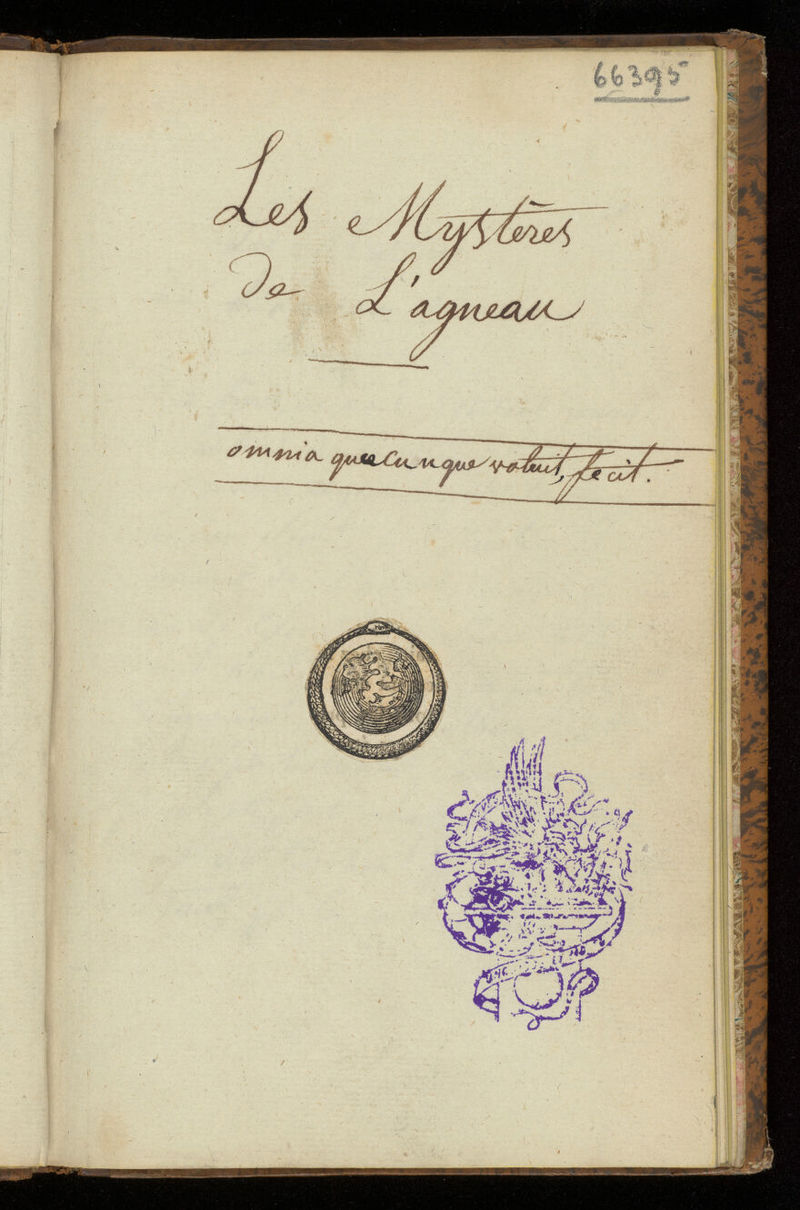 66395
Les Mystères
de L'agneau
omnia quæcunque voluit, fecit.